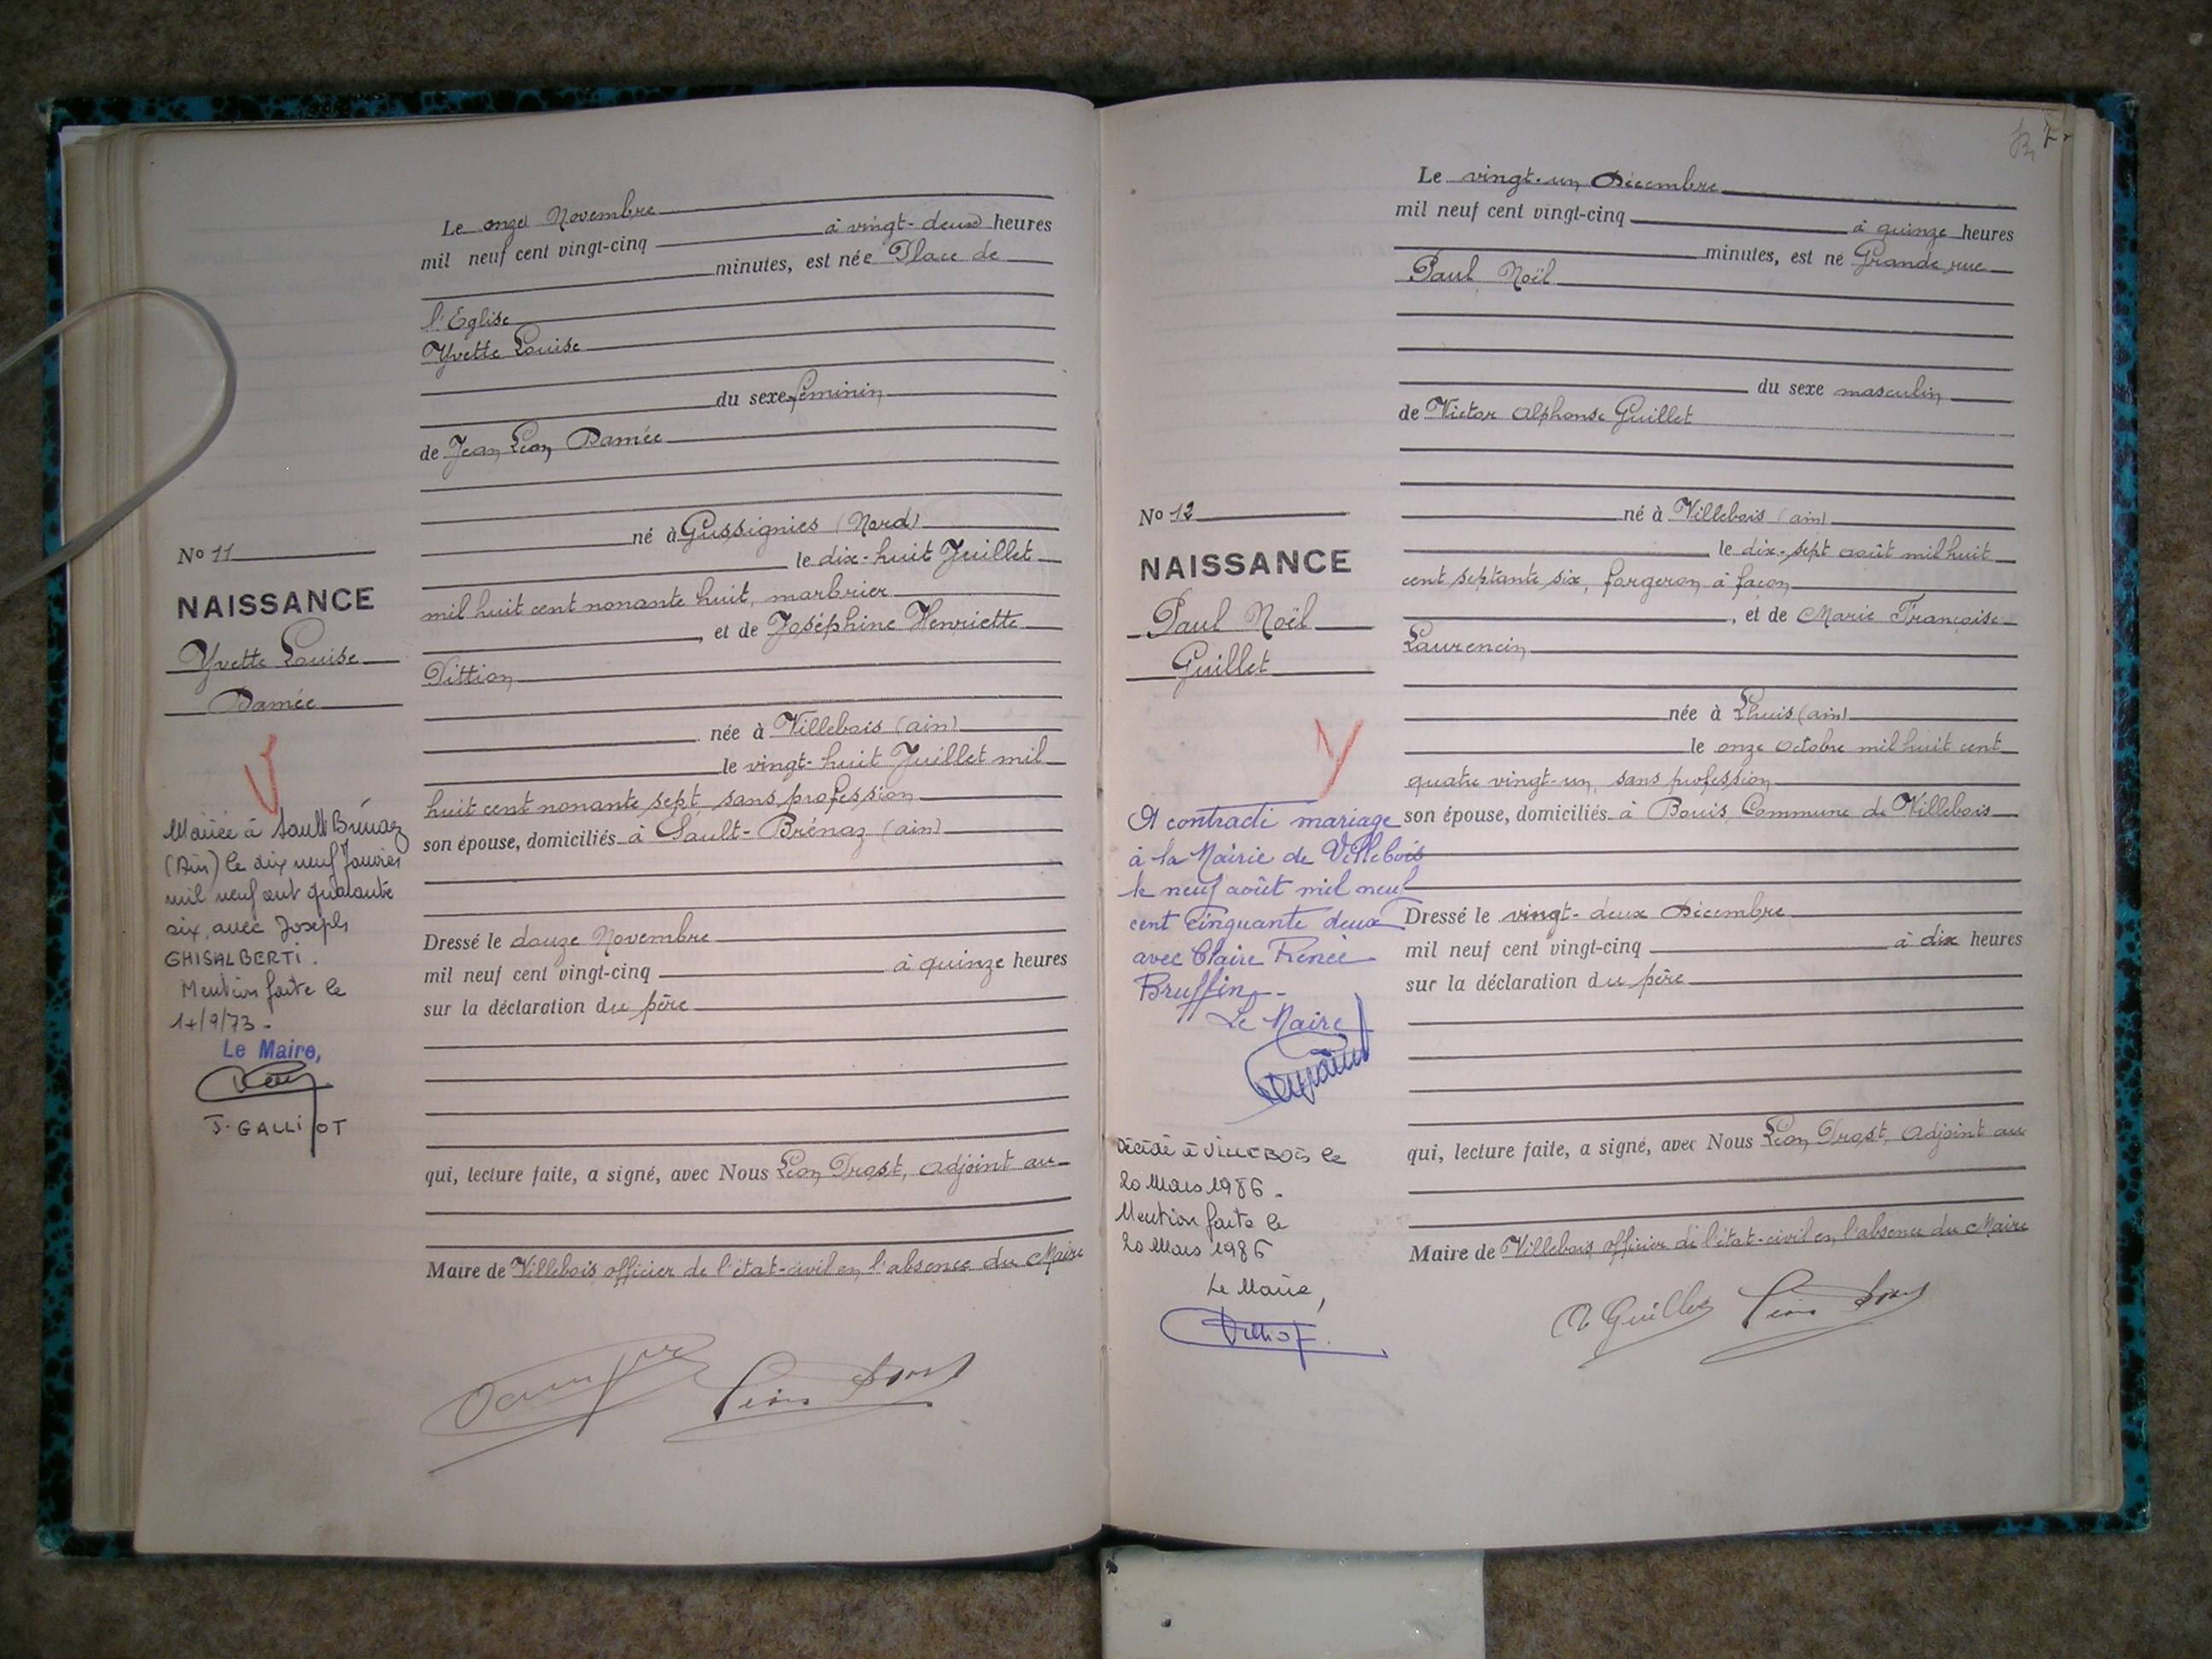 Le onze Novembre
mil neuf cent vingt-cinq à vingt-deux heures
minutes, est née Place de
l'Eglise
Yvette Louise
du sexe féminin
de Jean Léon Damée
né à Gussignies (Nord)
le dix-huit Juillet
mil huit cent nonante huit, marbrier
, et de Joséphine Henriette
Dittion
née à Villebois (ain)
le vingt-huit Juillet mil
huit cent nonante sept, sans profession
son épouse, domiciliés à Sault-Brénaz (ain)
Dressé le douze Novembre
mil neuf cent vingt-cinq à quinze heures
sur la déclaration du père
qui, lecture faite, a signé, avec Nous Léon Drost, adjoint au
Maire de Villebois officier de l'état-civil en l'absence du Maire
No 11
NAISSANCE
Yvette Louise
Damée
Mariée à Sault Brénaz
(Ain) le dix neuf Janvier
mil neuf cent quarante
six, avec Joseph
GHISALBERTI.
Mention faite le
14/9/73 -
Le Maire,
J. GALLIOT
Le vingt-un Décembre
mil neuf cent vingt-cinq à quinze heures
minutes, est né Grande rue
Paul Noël
du sexe masculin
de Victor Alphonse Guillet
né à Villebois (ain)
le dix-sept août mil huit
cent septante six, forgeron à façon
, et de Marie Françoise
Laurencin
née à Lhuis (ain)
le onze octobre mil huit cent
quatre vingt-un, sans profession
son épouse, domiciliés à Bouis Commune de Villebois
Dressé le vingt-deux Décembre
mil neuf cent vingt-cinq à dix heures
sur la déclaration du père
qui, lecture faite, a signé, avec Nous Léon Drost, adjoint au
Maire de Villebois officier de l'état-civil en l'absence du Maire
Guillet Léon Drost
No 12
NAISSANCE
Paul Noël
Guillet
A contracté mariage
à la Mairie de Villebois
le neuf août mil neuf
cent cinquante deux
avec Claire Renée
Bruffin -
Le Maire
Décédé à VILLEBOIS le
20 Mars 1986 -
Mention faite le
20 Mars 1986
Le Maire,